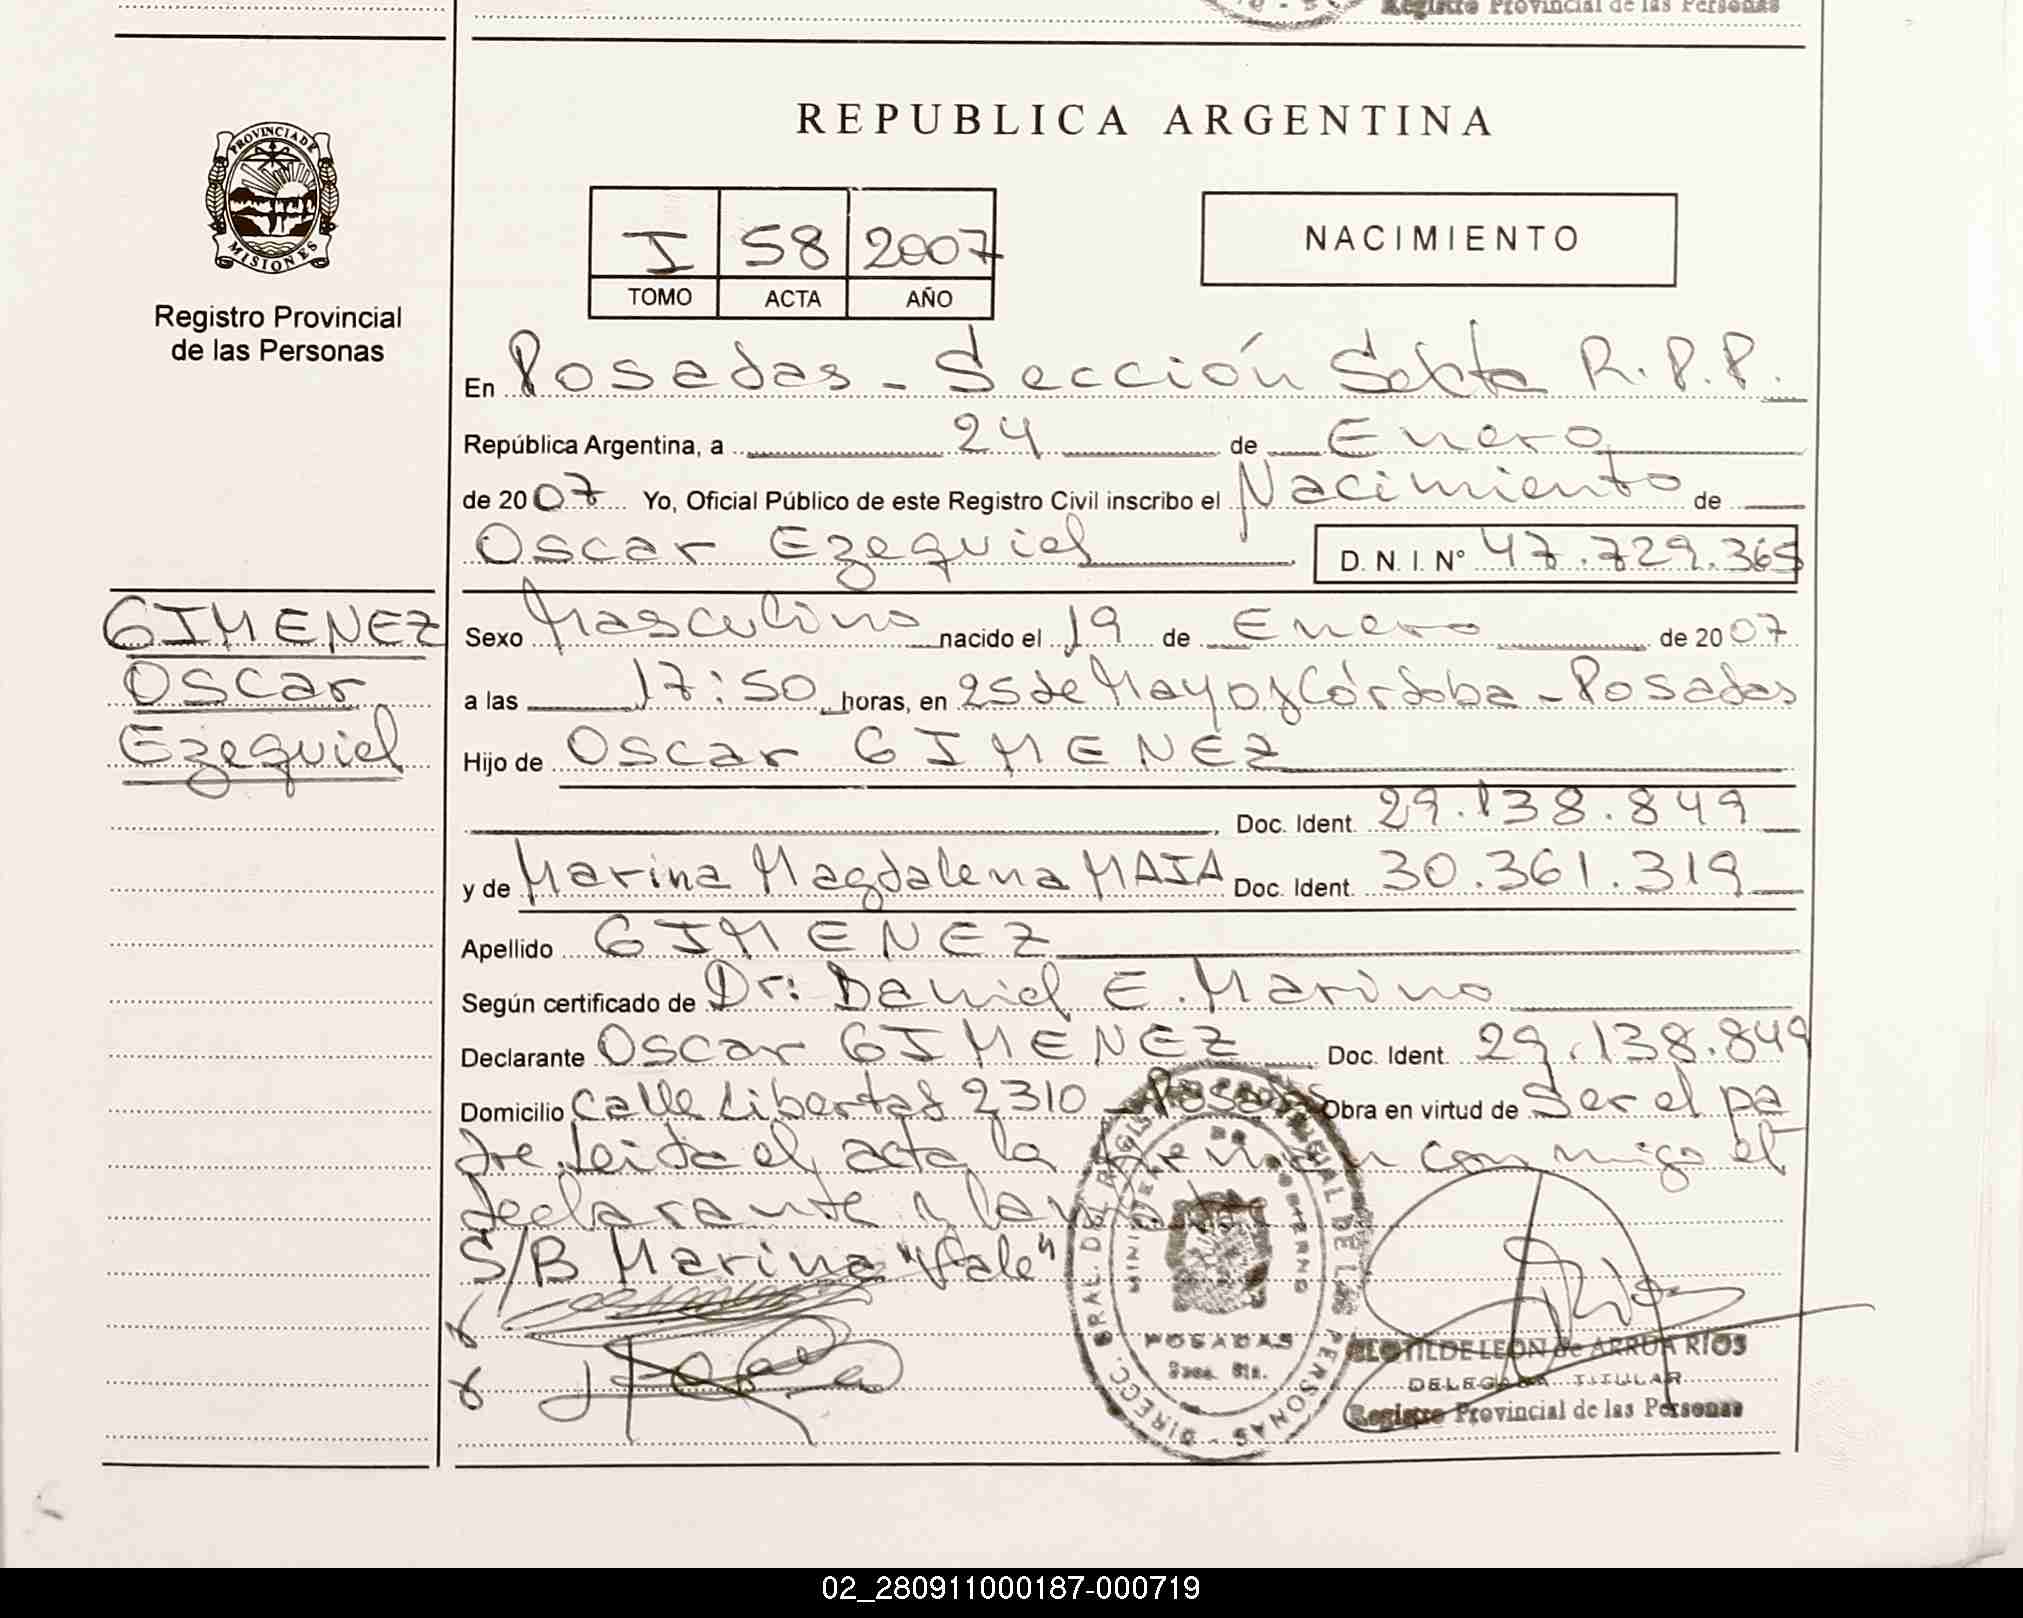 Registro Provincial de las Personas
REPUBLICA ARGENTINA
PROVINCIA DE
MISIONES
Registro Provincial
de las Personas
I 58 2007
TOMO ACTA AÑO
NACIMIENTO
En Posadas - Sección Sexta R.P.P.
República Argentina, a 24 de Enero
de 2007 Yo, Oficial Público de este Registro Civil inscribo el Nacimiento de
Oscar Ezequiel D. N. I. N° 47.729.365
GIMENEZ
Oscar
Ezequiel
Sexo Masculino nacido el 19 de Enero de 2007
a las 17:50 horas, en 25 de Mayo y Córdoba - Posadas
Hijo de Oscar GIMENEZ
Doc. Ident. 29.138.849
y de Marina Magdalena MAIA Doc. Ident. 30.361.319
Apellido GIMENEZ
Según certificado de Dr: Daniel E. Marino
Declarante Oscar GIMENEZ Doc. Ident. 29.138.849
Domicilio Calle Libertad 2310 - Posadas Obra en virtud de Ser el pa
dre. Leida el acta la firman conmigo el
declarante y la
S/B Marina "Vale"
DIRECC. GRAL. DEL REGIS PROVINCIAL DE LAS PERSONAS
MINISTERIO DE GOBIERNO
POSADAS
Secc. 6ta.
CLOTILDE LEON de ARRUA RIOS
DELEGADA TITULAR
Registro Provincial de las Personas
02_280911000187-000719